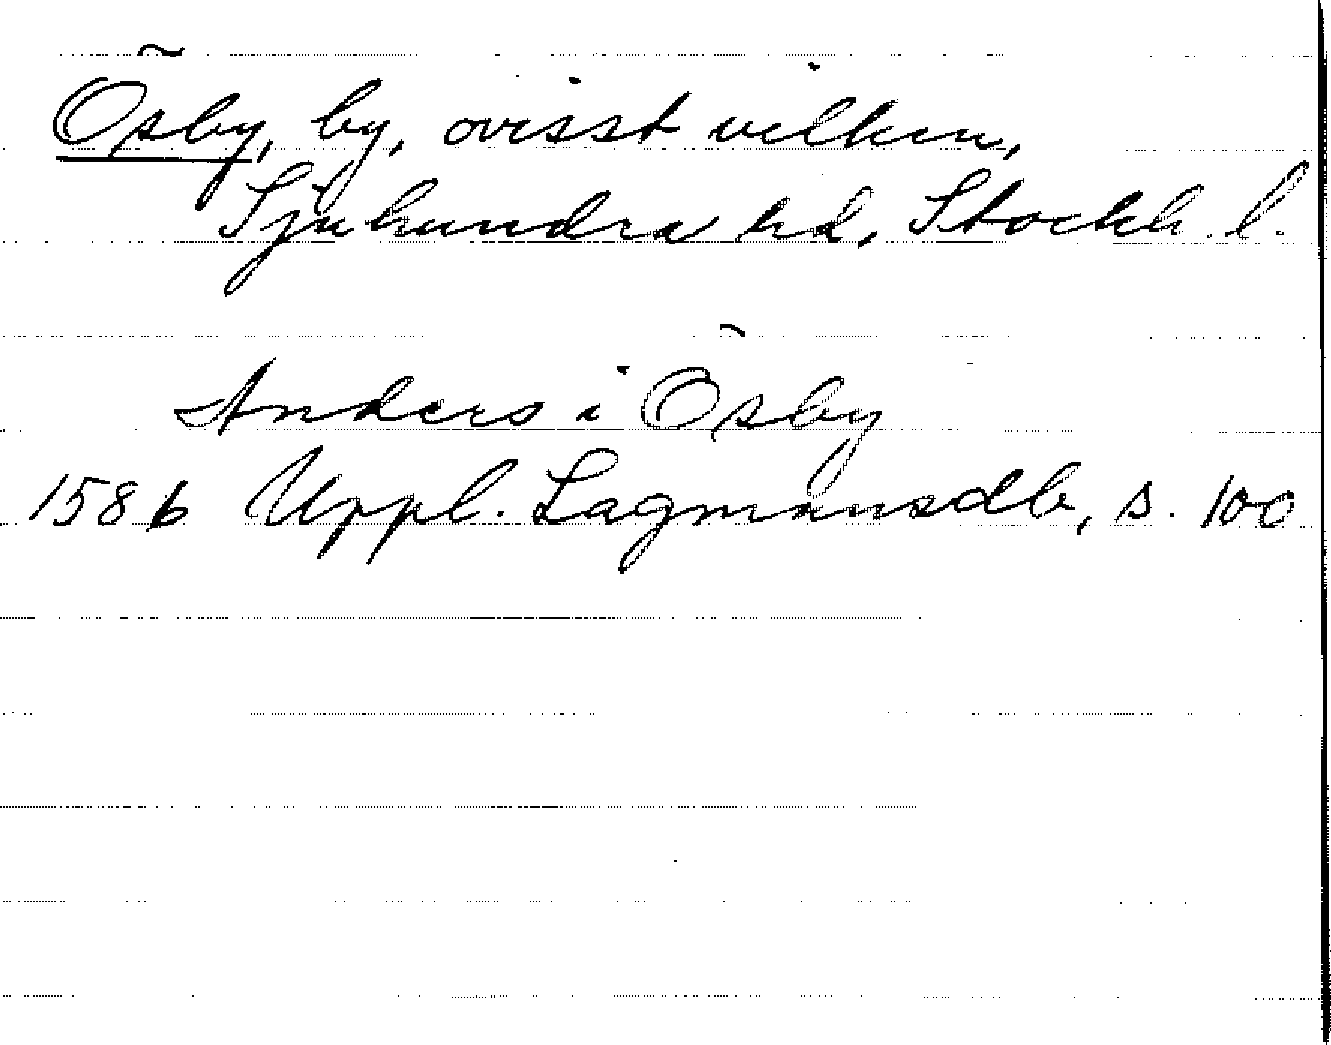 Ösby, by, ovisst vilken,
Sjuhundra hd, Stockh. l.
Anders i Ösby
1586 Uppl. Lagmansdb, s. 100